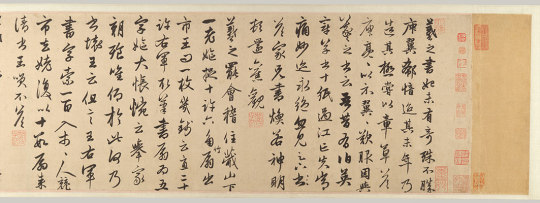 羲之書初未有奇殊不勝
庾翼郗愔迨其末年乃
造其極嘗以章草答
庾亮亮以示翼翼歎服因與
羲之書云吾昔有伯英
章草十紙過江亡失常
痛妙迹永絕忽見足下
答家兄書煥若神明
頓還舊觀
羲之罷會稽住蕺山下
一老嫗捉十許六角竹扇出
市王問一枚幾錢云直二十
許右軍取筆書扇扇五
字嫗大悵惋云舉家
朝飡惟仰於此何乃
書壞王云但言王右軍
書字索一百入市人競
市之姥復以十數扇來
請書王笑不答